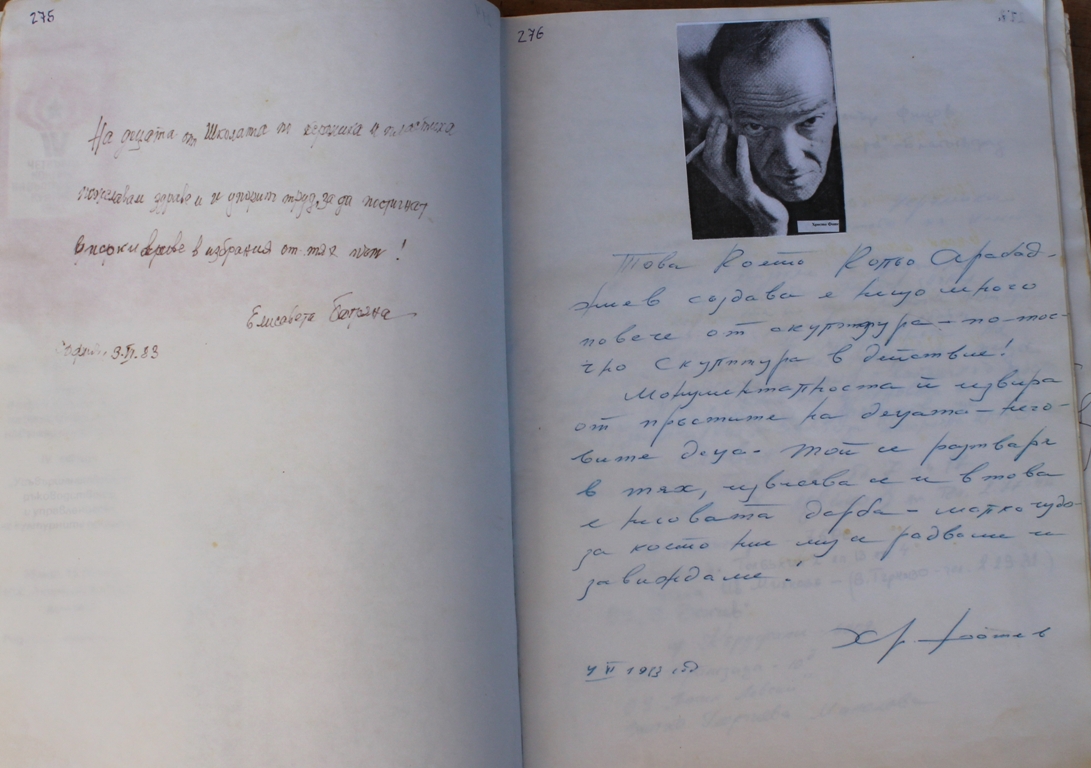 275
На децата от Школата по керамика и пластика
пожелавам здраве и упорит труд, за да постигнат
високи върхове в избрания от тях път!
Елисавета
3.VI.83
276
Това което Копьо Арабад-
жиев създава е нещо много
повече от скулптура – по-точ-
чно скулптура в действие!
Монументалноста й извира
от пръстите на децата – него-
вите деца. Той се разтваря
в тях, извисява се и в това
е неговата дарба – малко чудо
за което ние му се радваме и
завиждаме.
Хр.